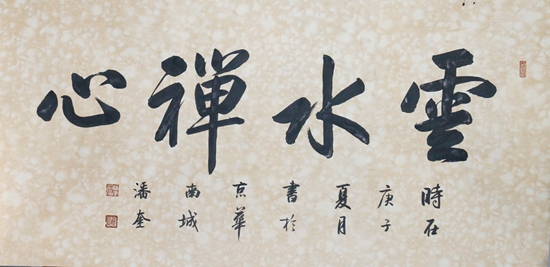 雲水禪心
時在
庚子
夏月
書於
京華
南城
潘奎